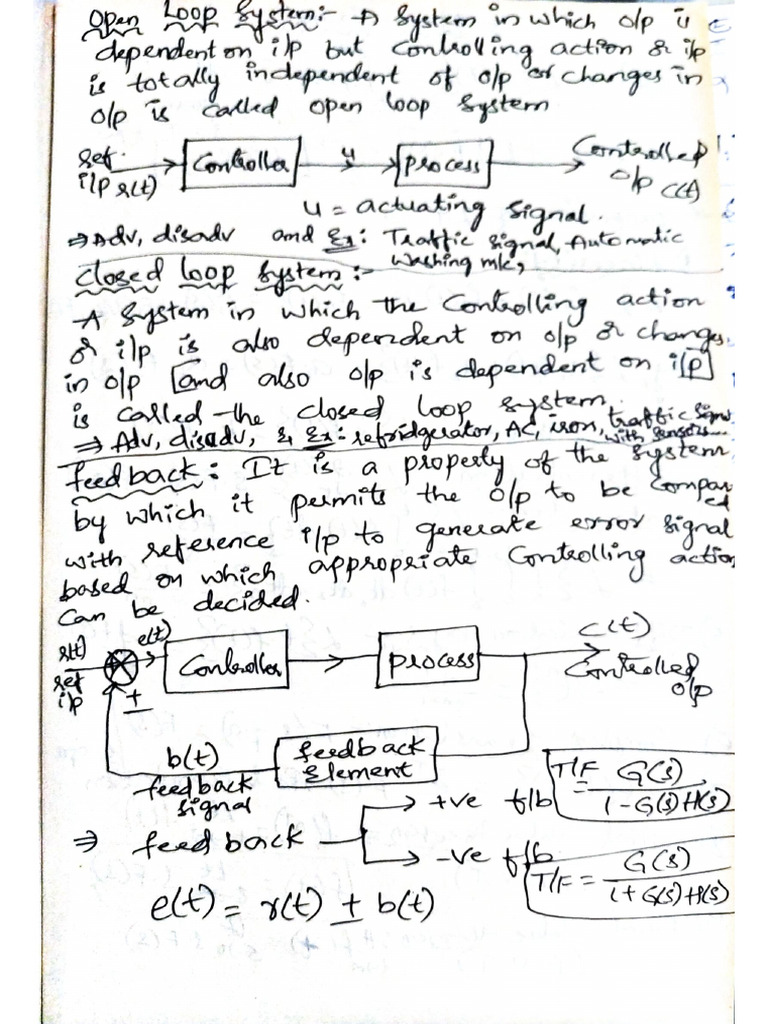 Open Loop System:- A System in which o/p is
dependent on i/p but Controlling action or i/p
is totally independent of o/p or changes in
o/p is called open loop system
ref. i/p r(t) Controller u process Controlled o/p C(t)
u = actuating signal.
⇒ Adv, disadv and Ex: Traffic signal, Automatic
washing m/c,
Closed loop System:-
A System in which the Controlling action
or i/p is also dependent on o/p or changes
in o/p [and also o/p is dependent on i/p]
is called the closed loop system.
⇒ Adv, disadv, & Ex: refridgerator, AC, iron, traffic
with sensors
feedback: It is a property of the System
by which it permits the o/p to be Compared
with reference i/p to generate error signal
based on which appropriate Controlling action
can be decided.
r(t) ref i/p e(t) ± Controller process C(t) Controlled o/p
b(t) feedback signal feedback Element
T/F = G(s) / 1 - G(s)H(s)
⇒ feedback → +ve f/b
→ -ve f/b
T/F = G(s) / 1 + G(s)H(s)
e(t) = r(t) ± b(t)